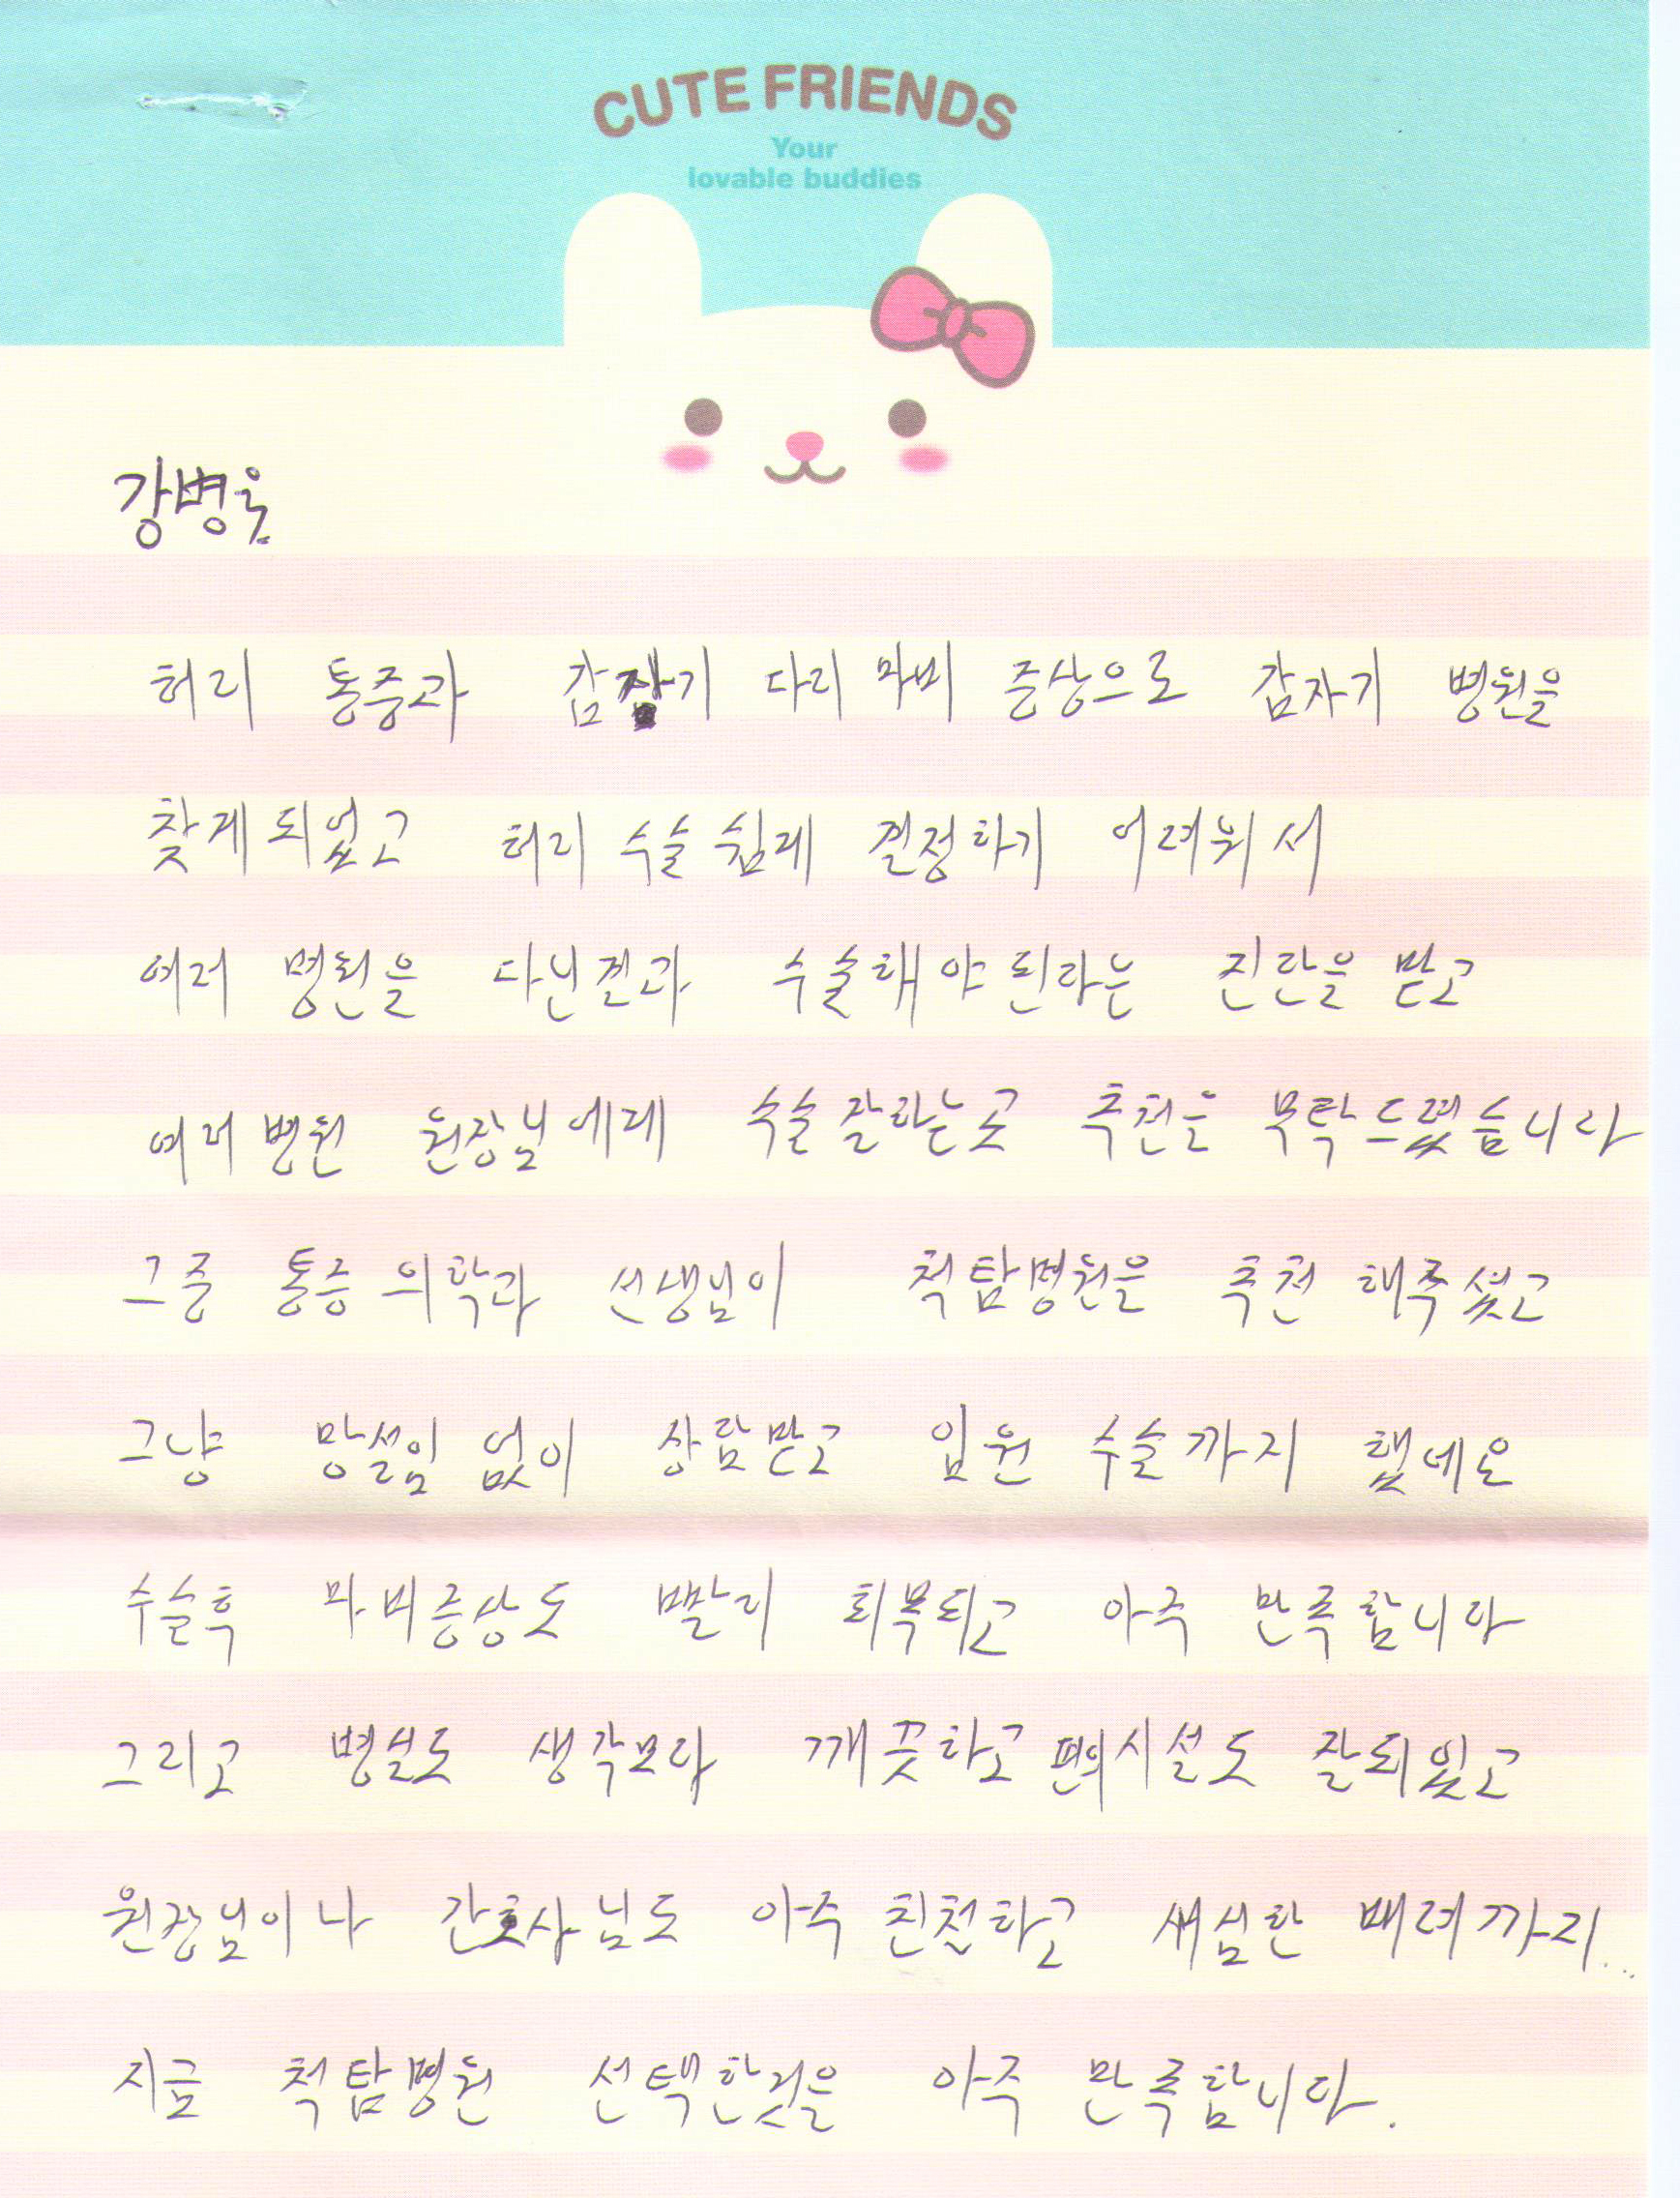 CUTE FRIENDS
Your
lovable buddies
강병욱
허리 통증과 갑자기 다리 마비 증상으로 갑자기 병원을
찾게되었고 허리 수술 쉽게 결정하기 어려워서
여러 병원을 다닌결과 수술해야된라는 진단을 받고
여러병원 원장님에게 수술잘하는곳 추천을 부탁드렸습니다
그중 통증의학과 선생님이 척탑병원을 추천해주셨고
그냥 망설임없이 상담받고 입원 수술까지 했네요
수술후 마비증상도 빨리 회복되고 아주 만족합니다
그리고 병실도 생각보다 깨끗하고 편의시설도 잘되있고
원장님이나 간호사님도 아주 친절하고 세심한 배려까지...
지금 척탑병원 선택한것을 아주 만족합니다.